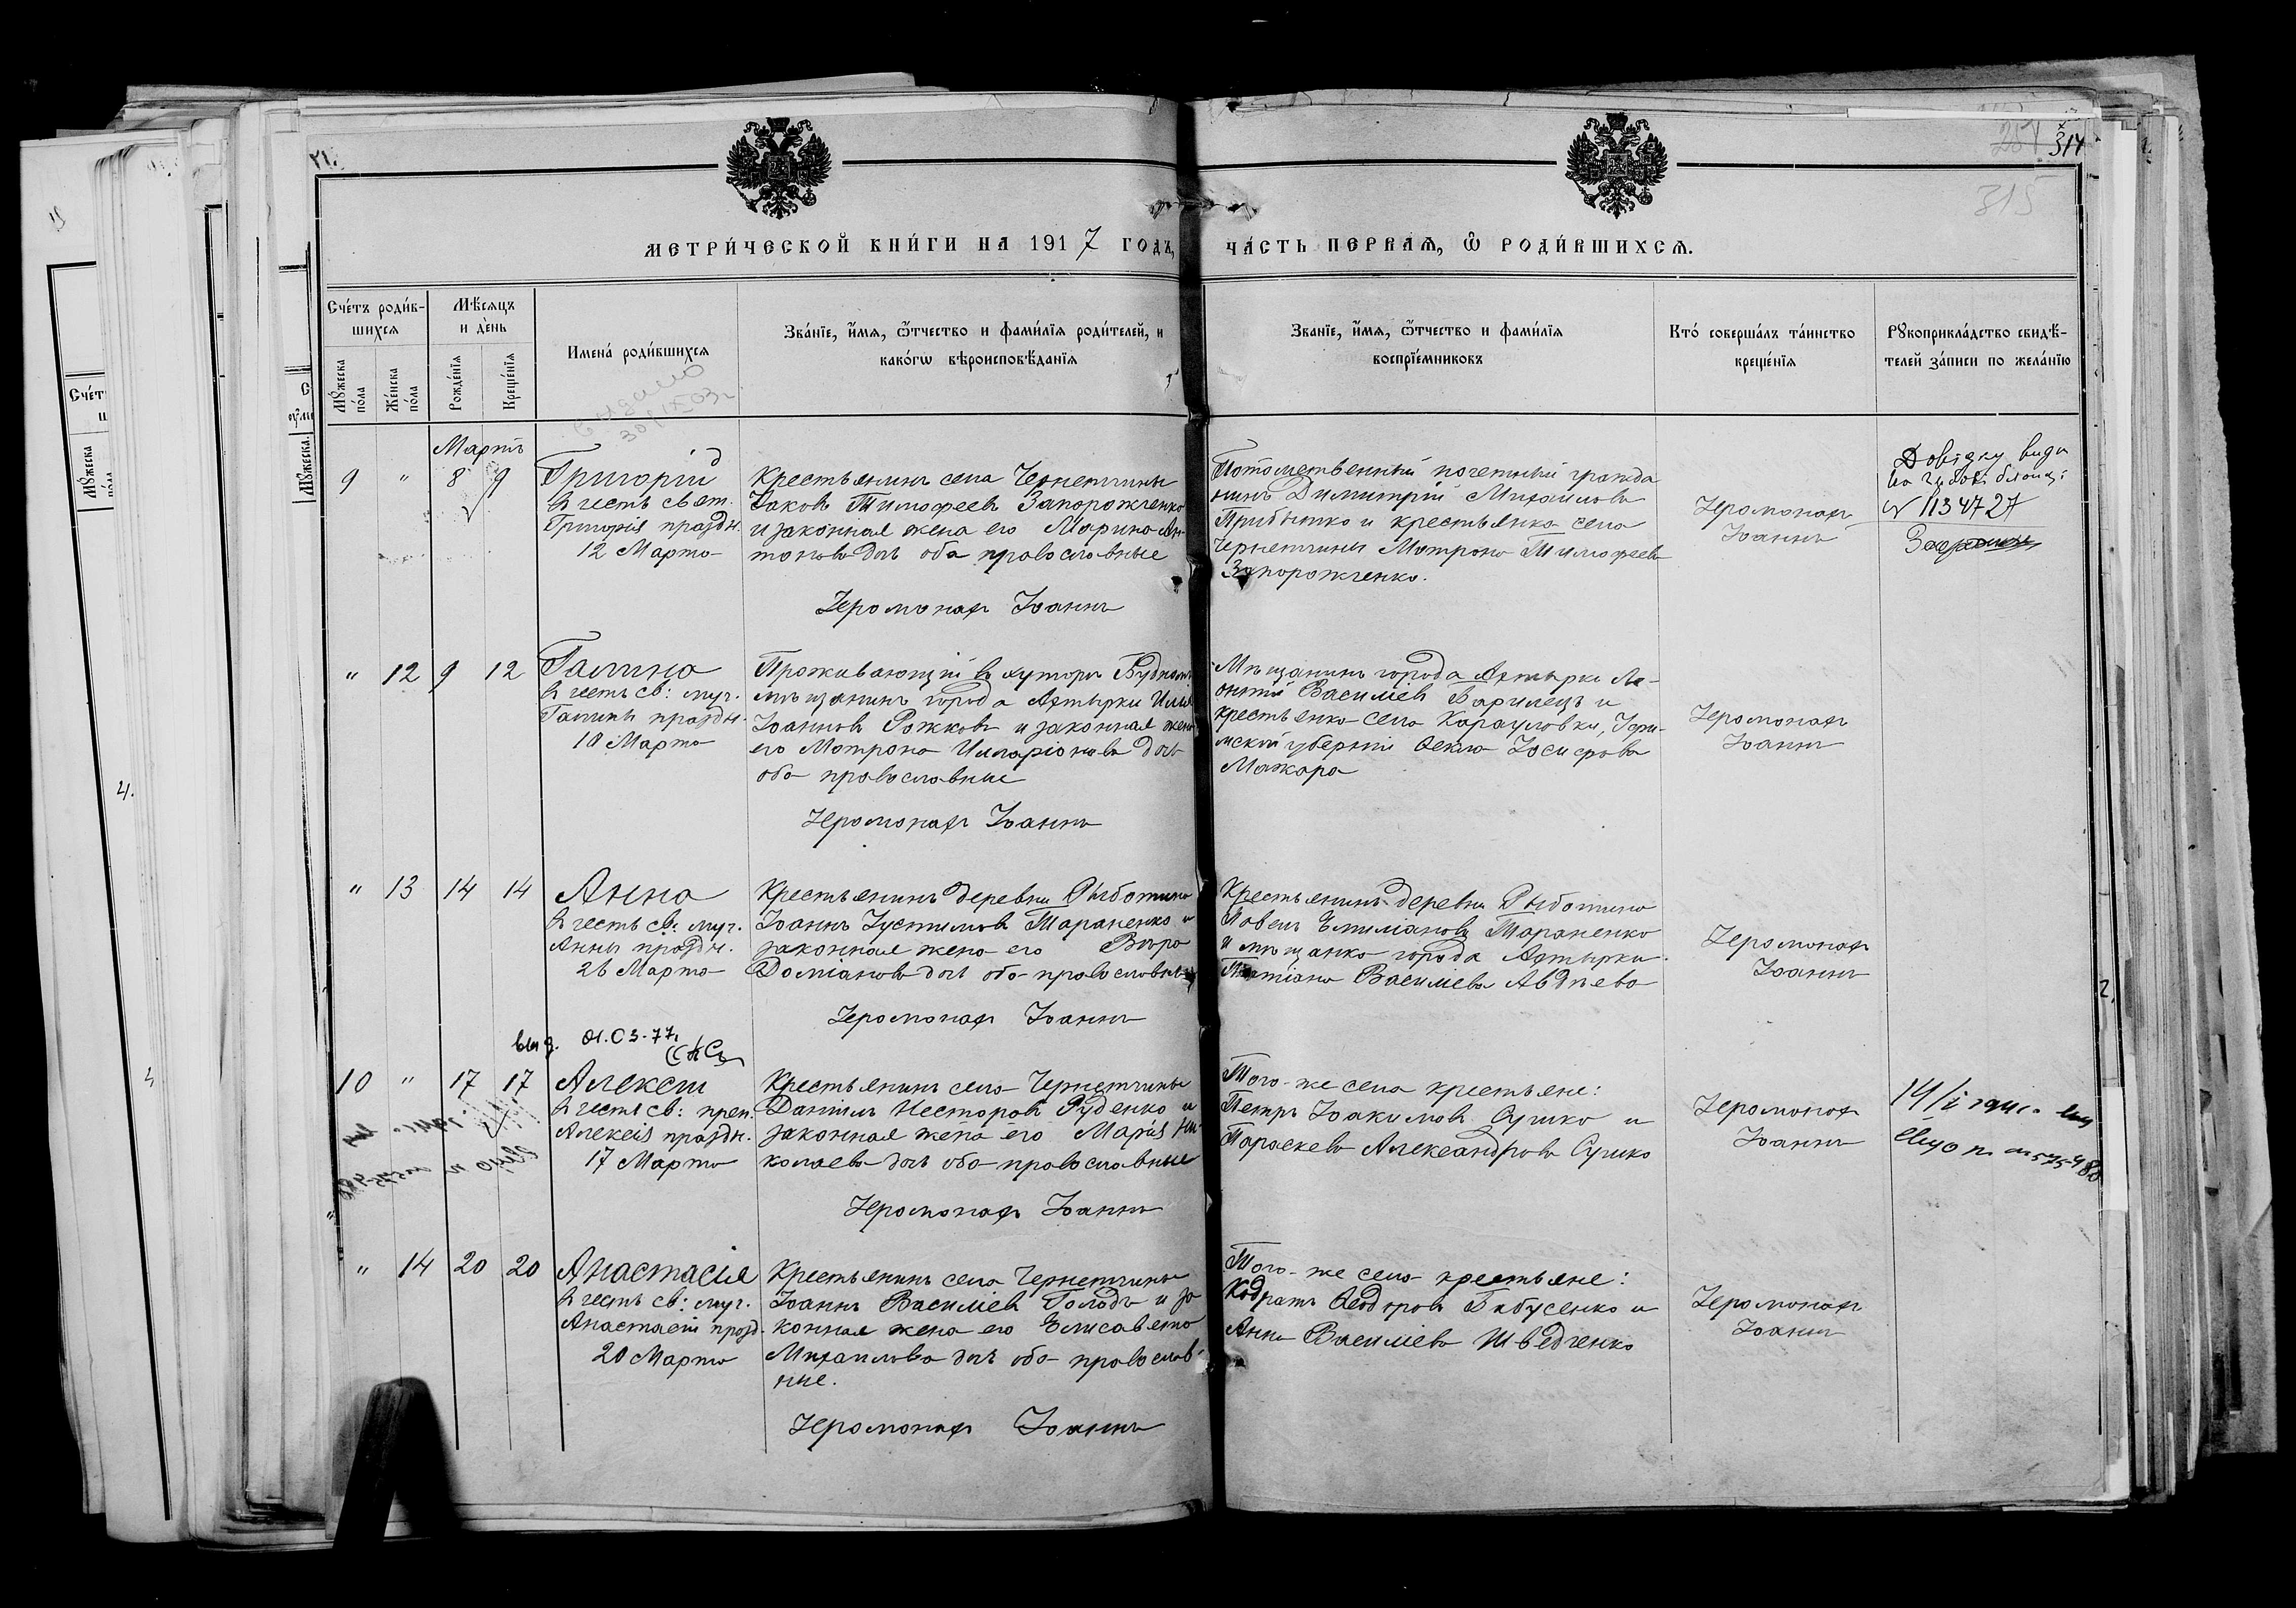 314
315
МЕТРИ́ЧЕСКОЙ КНИ́ГИ НА 1917 ГОДЪ,
ЧА́СТЬ ПЕРВАЯ, Ѿ РОДИ́ВШИХСЯ.
Сче́тъ роди́в-
шихся
Мꙋ́жеска по́ла
Же́нска по́ла
Мѣ́сяцъ
и де́нь
Рожде́нїя
Креще́нїя
Имена́ роди́вшихся
Зва́нїе, и́мя, ѻ́тчество и фами́лїя роди́телей, и
како́гѡ вѣроисповѣ́данїя
Зва́нїе, и́мя, ѻ́тчество и фами́лїя
воспрїе́мниковъ
Кто́ соверша́лъ та́инство
креще́нїя
Рꙋкоприкла́дство свидѣ́-
телей за́писи по жела́нїю
Мартъ
9 " 8 9
Григорій
въ честь свят.
Григорія праздн.
12 Марта
Крестьянинъ села Чернетчины
Іаковъ Тимофеевъ Запорожченко
и законная жена его Марина Ан-
тонова дочь оба православные
Іеромонахъ Іоаннъ
Потомственный почетный гражда
нинъ Димитрій Михайловъ
Прибытко и крестьянка села
Чернетчины Матрона Тимофеева
Запорожченко.
Іеромонахъ
Іоаннъ
Довідку вида
№ 1134727
" 12 9 12
Галина
въ честь св: муч.
Галины праздн.
10 Марта
Проживающій въ хуторѣ
мѣщанинъ города Ахтырки Илья
Іоанновъ Рожковъ и законная жена
его Матрона Иларіонова дочь
оба православные
Іеромонахъ Іоаннъ
Мѣщанинъ города Ахтырки Ле-
онтій Васильевъ и
крестьянка села Карауловки,
губерніи Ѳекла Іосифова
Мажара
Іеромонахъ
Іоаннъ
" 13 14 14
Анна
въ честь св: муч.
Анны праздн.
26 Марта
Крестьянинъ деревни Рыботина
Іоаннъ Іустиновъ Тараненко и
законная жена его Вѣра
Даміанова дочь оба православные
Іеромонахъ Іоаннъ
Крестьянинъ деревни Рыботина
Павелъ Емиліановъ Тараненко
и мѣщанка города Ахтырки
Татіана Васильева Авдѣева
Іеромонахъ
Іоаннъ
выд. 01.03.77г.
10 " 17 17
Алексій
въ честь св: преп.
Алексія праздн.
17 Марта
Крестьянинъ села Чернетчины
Даніилъ Несторовъ Руденко и
законная жена его Марія Ни-
колаева дочь оба православные
Іеромонахъ Іоаннъ
Того-же села крестьяне:
Петръ Іоакимовъ Сушко и
Параскева Александрова Сушко
Іеромонахъ
Іоаннъ
" 14 20 20
Анастасія
въ честь св: муч.
Анастасіи празд.
20 Марта
Крестьянинъ села Чернетчины
Іоаннъ Васильевъ Голодъ и за
конная жена его Елисавета
Михаилова дочь оба православ-
ные.
Іеромонахъ Іоаннъ
Того-же села крестьяне:
Кодратъ Ѳеодоровъ Бабусенко и
Анна Васильева Шведченко
Іеромонахъ
Іоаннъ